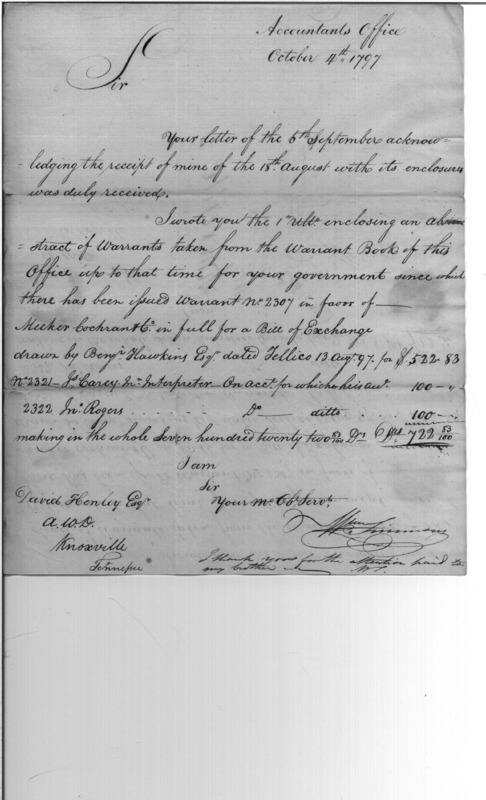 Accountants Office
October 4th 1797
Sir
Your letter of the 6th September acknow-
-ledging the receipt of mine of the 18th August with its enclosures
was duly received.
I wrote you the 1st Ulto. enclosing an Ab
=stract of Warrants taken from the Warrant Book of this
Office up to that time for your government since which
there has been issued Warrant No 2307 in favor of
Meeker Cochran & Co. in full for a Bill of Exchange
drawn by Benjn Hawkins Esqr dated Tellico 13 Augt 97. for $ 522 83
No 2321 Js Carey In. Interpreter On acct. for which he is acct. 100 " "
2322 Jno. Rogers . . . . . . Do ditto . . . . 100
making in the whole Seven hundred twenty two 83/100 Drs Dlls 722 83/100
I am
Sir
Your Mo Ob. Servt.
David Henley Esqr.
A.W.D.
Knoxville
Tennessee
Wm Simmons
I thank you for the attention paid to
my brother WS.